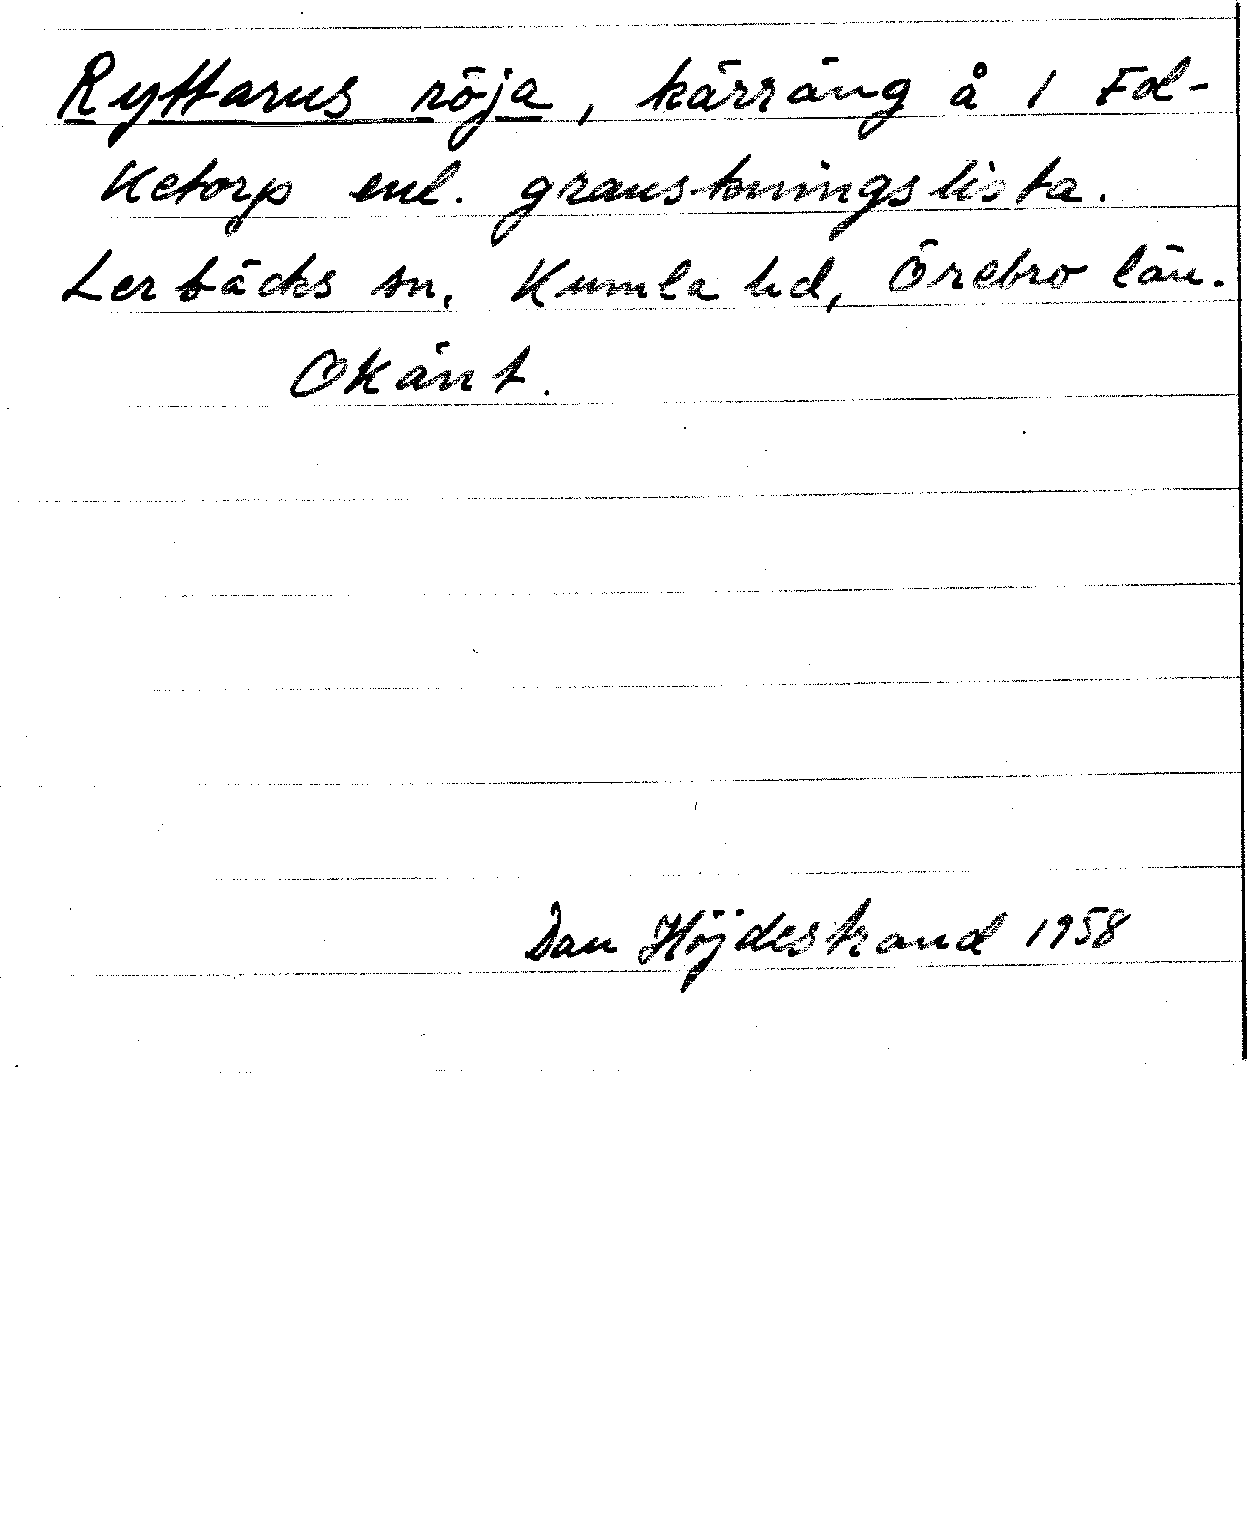 Ryttarns röja, kärräng å 1 Fol-
ketorp enl. granskningslista.
Lerbäcks sn, Kumla hd, Örebro län.
Okänt.
Dan Höjdestrand 1958